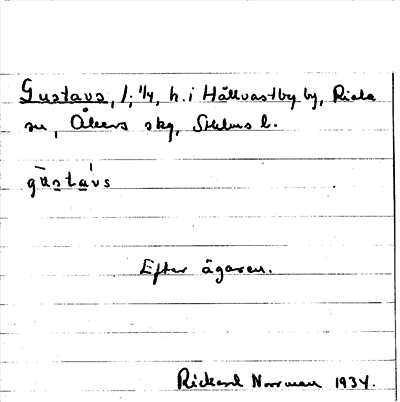 Gustavs, l, 1/4, h. i Hållvastby by, Riala
sn, Åkers skg, Sthlms l.
gūsta̍vs
Efter ägaren.
Rickard Norrman 1934.